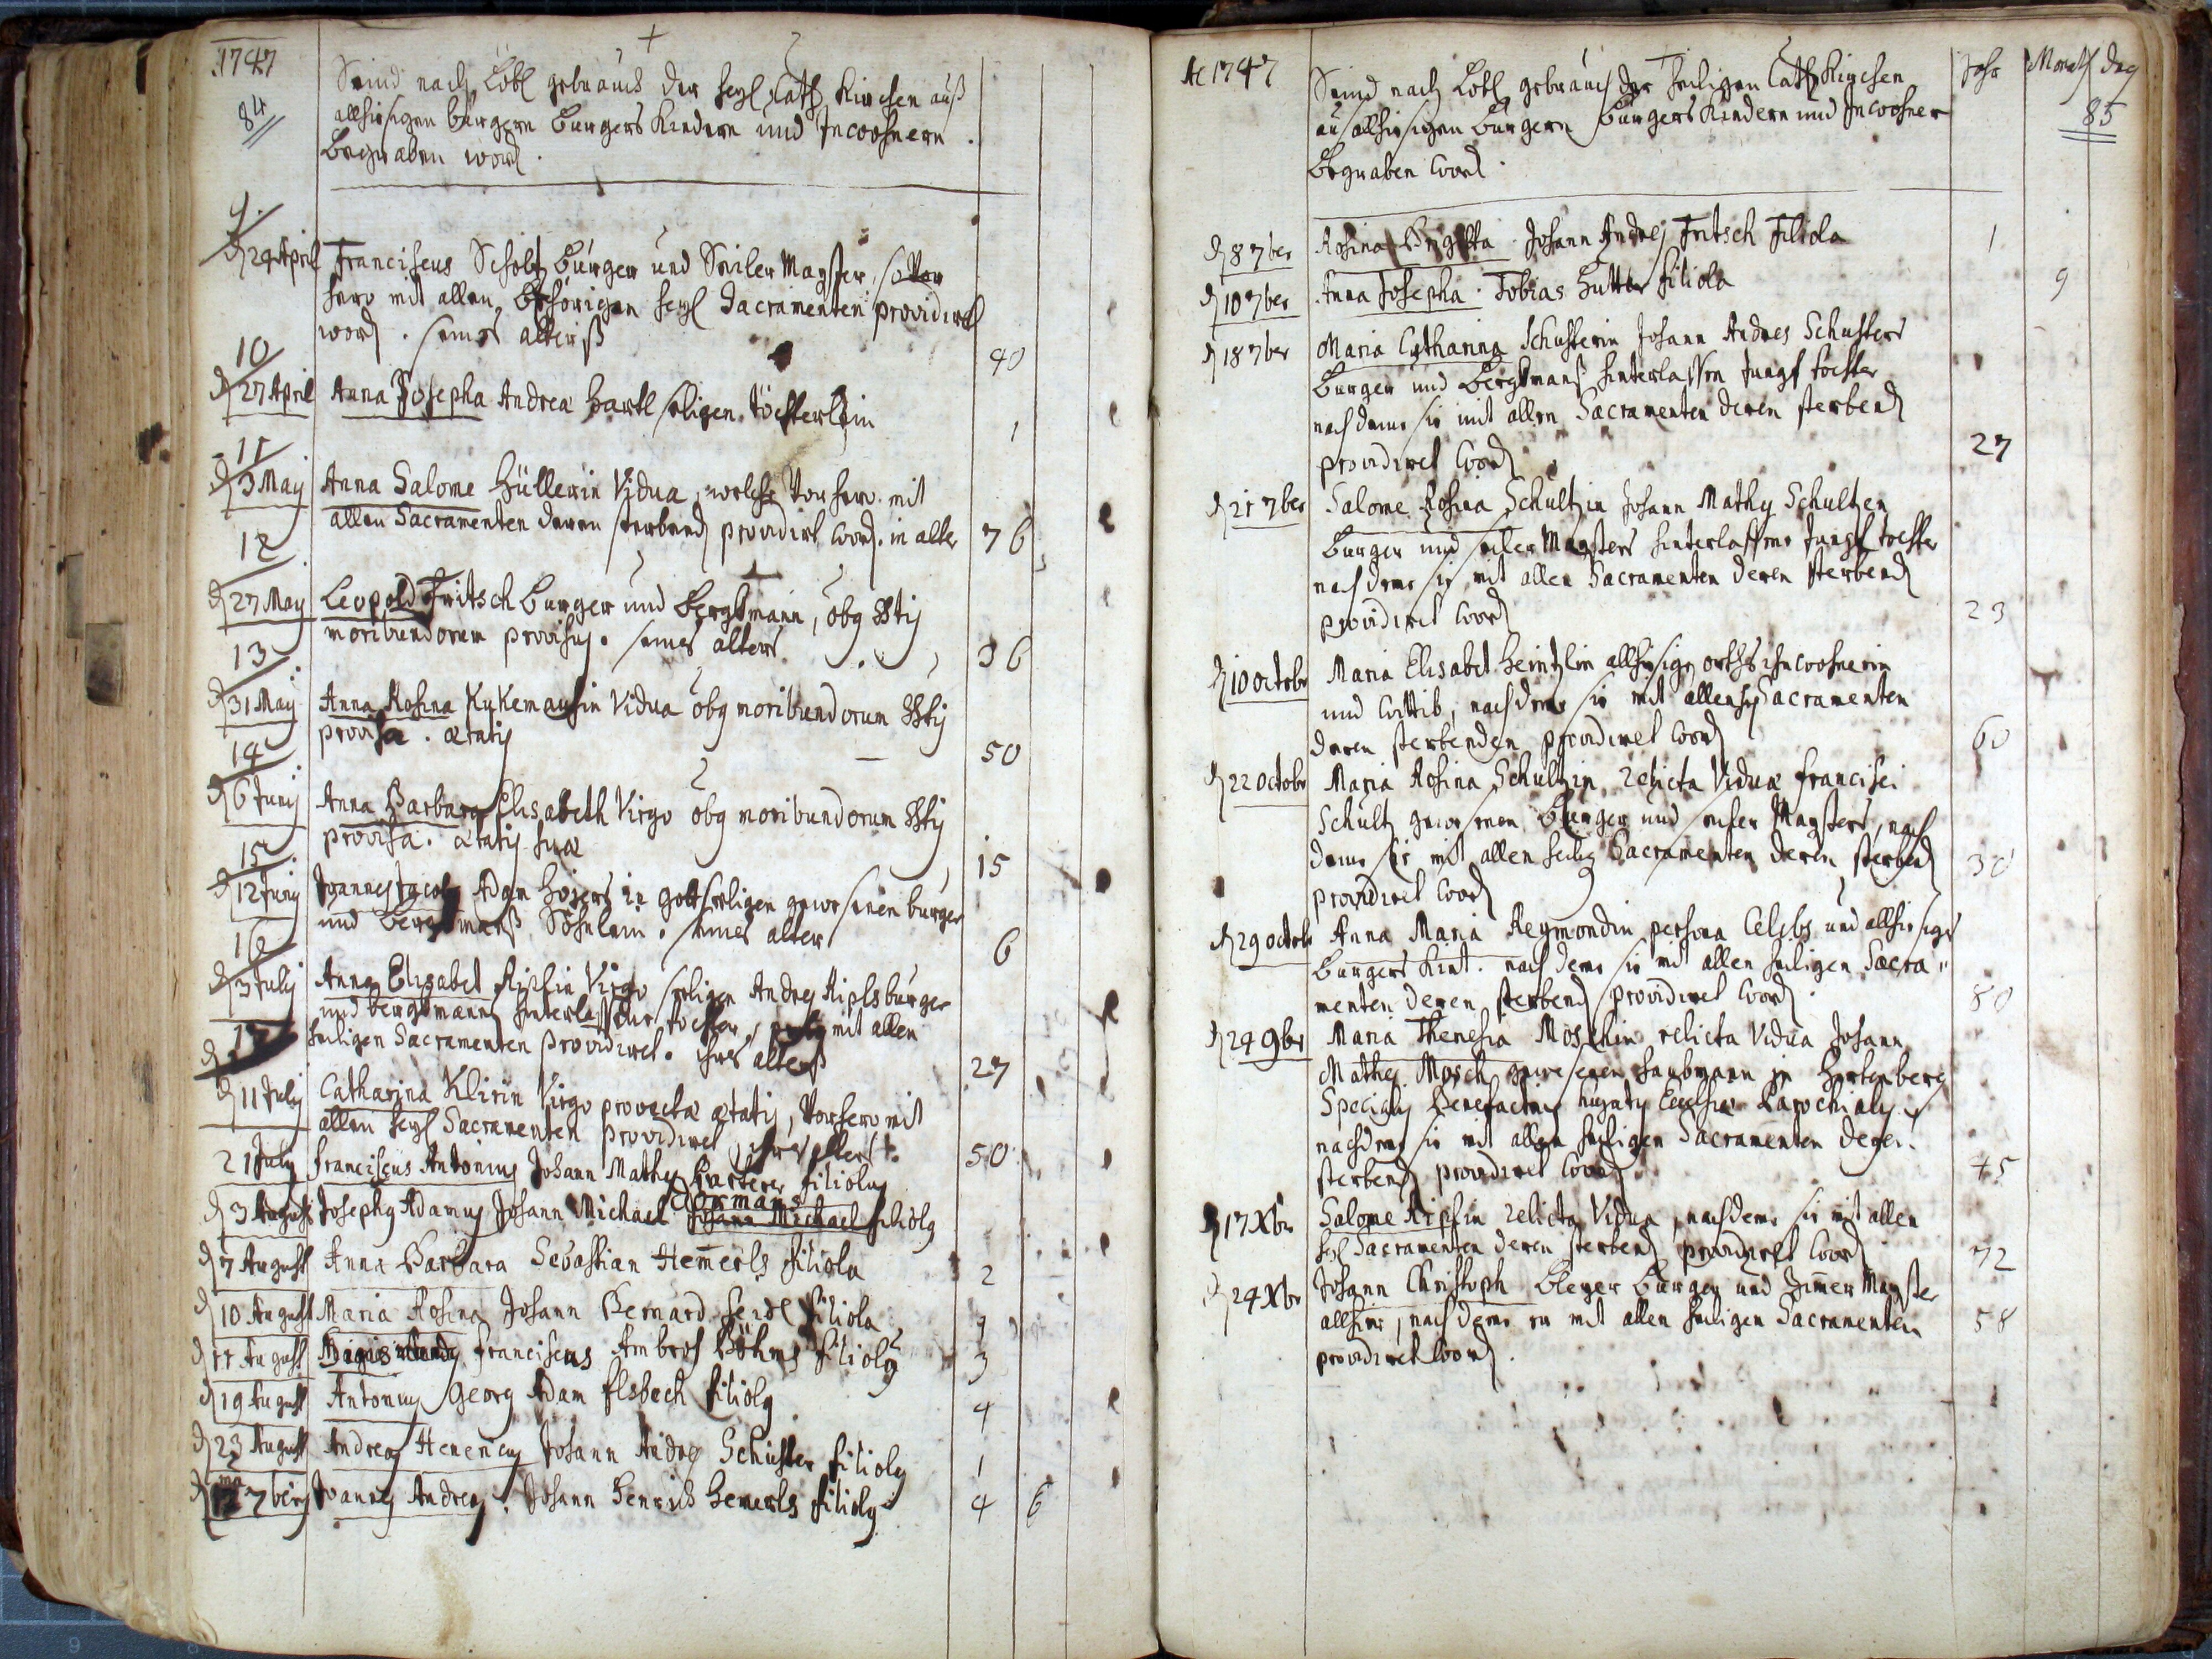 1747
84
Seind nach Löbl gebrauch der heyl Cath Kirchen auß
allhiesigen burgern Burgers Kindern und Inwohnern
Begraben word.
9.
d 24 April Franciscus Scholtz Burger und Seiler Mayster, so vor
hero mit allen behörigen heyl Sacramenten providiret
word. seines alterß 40
10
d 27 April Anna Josepha Andrea Hartl seligen töchterlein 1
11
d 3 May Anna Salome Hüllerin Vidua, welche vorhero mit
allen Sacramenten deren sterbend providirt word. in alter 76
12
d 27 May Leopold Fritsch Burger und Bergkmann, obg SStis
moribundorum provisus. seines alters 36
13
d 31 May Anna Rosina Vidua obg moribundorum SStis
provisa. ætatis 50
14
d 6 Junij Anna Barbara Elisabeth Virgo obg moribundorum SStis
provisa. ætatis suæ 15
15
d 12 Junij Joannes Jacob Adam in gottseeligen gewesenen burger
und Bergkmanß Söhnlein. seines alter 6
16
d 3 Julij Anna Elisabet Riplin Virgo seeligen Andrej Ripls burger
und bergkmannß hinterlassene tochter, mit allen
heiligen Sacramenten providiret. ihres alterß 27
17
d 11 Julij Catharina Klirin Virgo provectæ ætatis, vorhero mit
allen heyl Sacramenten providiret, ihres alterß 50
21 July Franciscus Antonius Johann Mathes filiolus
dormans
d 3 August Josephus Adamus Johann Michael Johann Michael filiolus
d 7 August Anna Barbara Sebastian Hem̄erls filiola 2
d 10 August Maria Rosina Johann Bernard Seidl filiola 9
d 11 August Franciscus Ambros Böhms filiolus 3
d 19 August Antonius Georg Adam Elsbach filiolus 4
d 23 August Andreas Johann Andres Schuster filiolus 1
d 7bris Joannes Andreas. Johann Henrich Hemerls filiolus 4 6
Ac 1747 Jahr Monath Dag
85
Seind nach Löbl gebrauch der heiligen Cath Kirchen
aus allhiesigen Burgern Burgers Kindern und Inwohner
Begraben word.
d 8 7ber Rosina Brigitta. Johann Andrej Fritsch Filiola 1
d 10 7ber Anna Josepha. Tobias Hutter filiola 9
d 18 7ber Maria Catharina Schusterin Johann Andres Schusters
Burger und Bergkmanß hinterlassen Jungf tochter
nachdeme sie mit allen Sacramenten deren sterbend
providiret word 27
d 21 7ber Salome Rosina Schultzin Johann Mathy Schultzen
Burger und seiler Maysters hinterlassene Jungf tochter
nachdeme sie mit allen Sacramenten deren sterbend
providiret word 23
d 10 octobr Maria Elisabet Heintzlin allhiesige orths inwohnerin
und Wittib, nachdeme sie mit allen hey Sacramenten
deren sterbenden providiret word 60
d 22 octobr Maria Rosina Schultzin relicta Vidua Francisci
Schultz gewesenen Burger und seiler Maysters, nach
deme sie mit allen heilig Sacramenten deren sterbend 30
providiret word
d 29 octobr Anna Maria Reymondin persona Celebs und allhiesige
Burgers Kint. nach deme sie mit allen heiligen Sacra"
menten deren sterbend providiret word. 80
d 24 9br Maria Theresia Moschin relicta Vidua Johann
Mathes Mosch gewesenen haubmann in Hertenberg
Specialis Benefactris huiatis Ecclesiæ Parochialis
nachdeme sie mit allen heiligen Sacramenten deren
sterbend providiret word 45
d 17 Xbr Salome Riplin relicta Vidua, nachdeme sie mit allen
heyl Sacramenten deren sterbend providiret word 72
d 24 Xbr Johann Christoph Bleyer Burger und Zim̄er Mayster
allhier, nach deme er mit allen heiligen Sacramenten 58
providiret word.